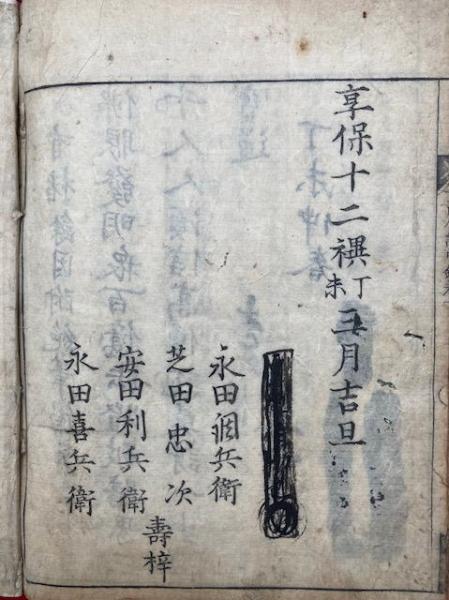 享保十二禩丁未三月吉旦
永田調兵衛
芝田忠次
安田利兵衛
永田喜兵衛
壽梓